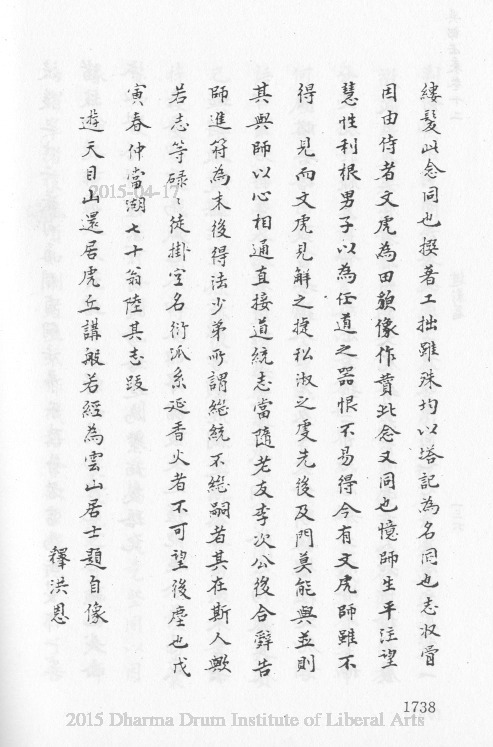 縷髮此念同也撰著工拙雖殊均以塔記為名同也志汝曾
因由侍者文虎為田額像作贊此念又同也憶師生平注望
慧性利根男子以為任道之器恨不易得今有文虎師雖不
得一見而文虎見解之捷私淑之虔先後及門莫能與並則
其與師以心相通直接道統志當隨老友李次公後合辭告
師進符為末後得法少弟所謂絕統不絕嗣者其在斯人歟
若志等碌〻徒掛空名衍派系延香火者不可望後塵也戊
寅春仲當湖七十翁陸其志跋
遊天目山還居虎丘講般若經為雲山居士題自像
釋洪恩
2015-04-17
1738
2015 Dharma Drum Institute of Liberal Arts